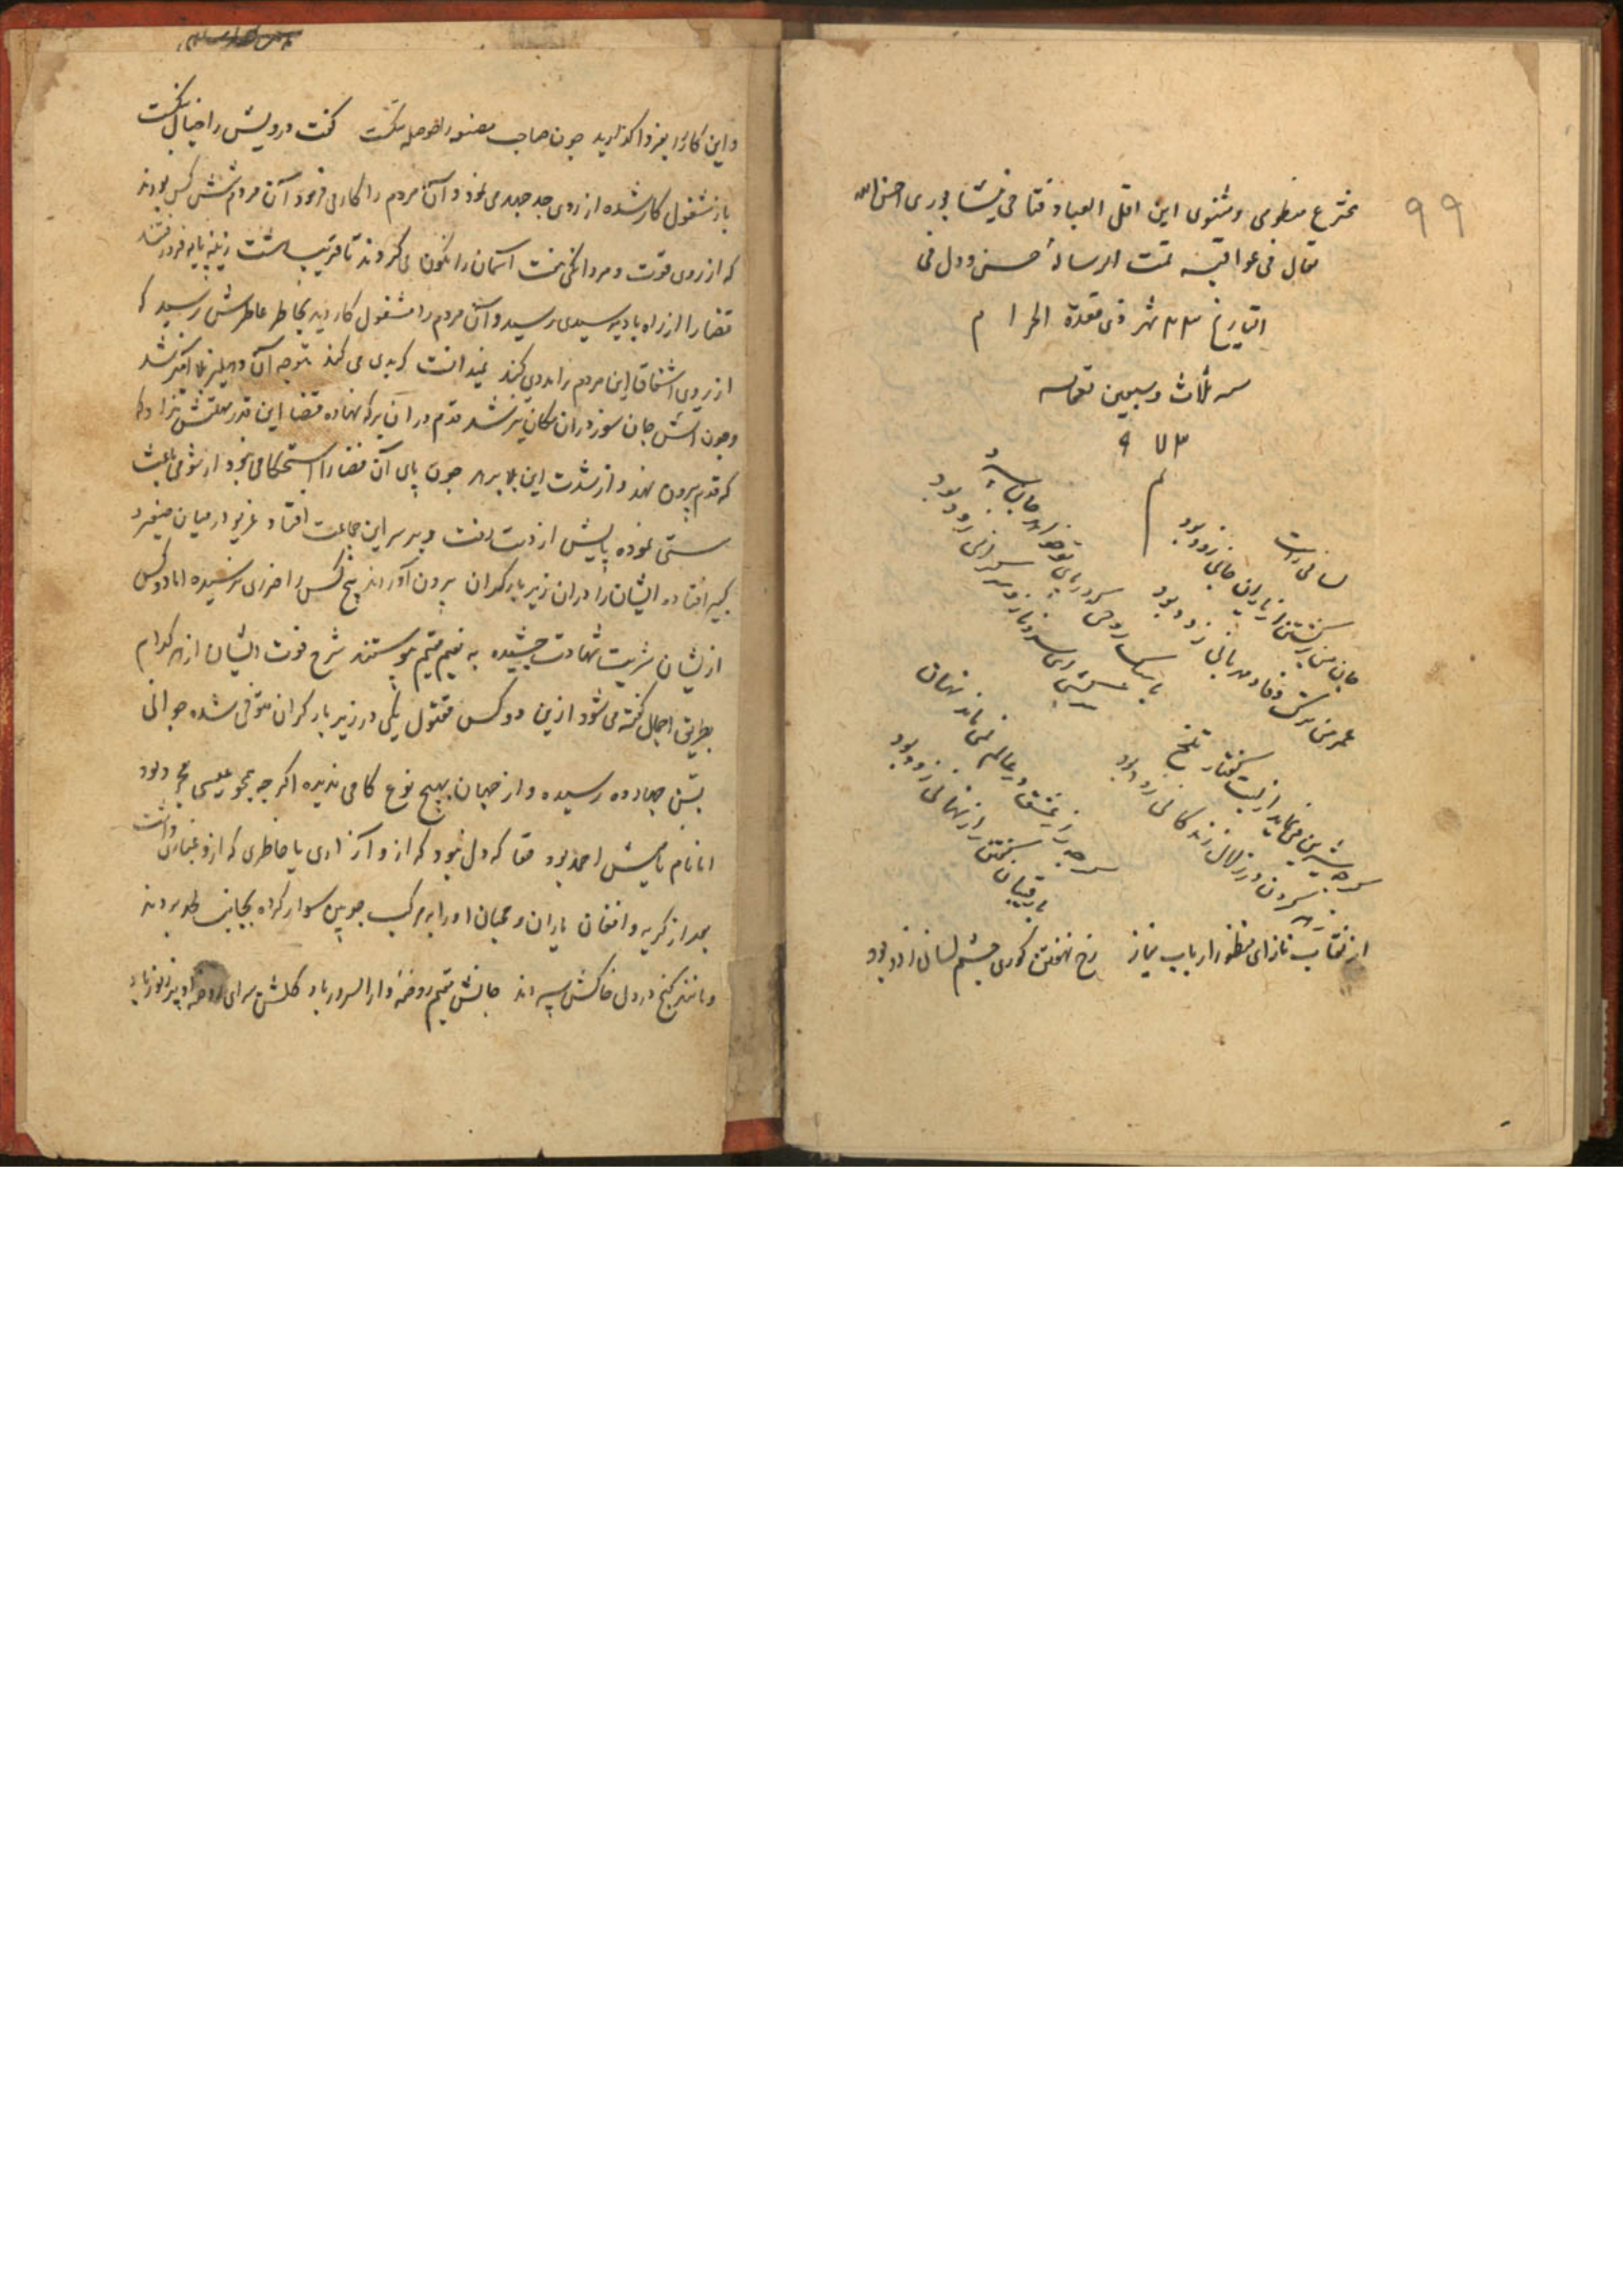 ۹۹
مخترع منظومی و مثنوی این اقل العباد فتاحی نیشابوری احسن الله
تعالی فی عواقبه تمت الرسالهٔ حسن و دل فی
التاریخ ۲۳ شهر ذی قعدة الحرام
سنه ثلاث و سبعین تسعمائه
۹۷۳
م
لسانی راست
جان من برگشتن از یاران جانی زود بود
عمر من ترک وفا و مهربانی زود بود
با سبک روحی که در پای تو خواهد جان سپرد
سرکشی ای سرو ناز و سرگرانی زود بود
گرچه شیرین می‌نماید از لبت گفتار تلخ
زهر کردن در زلال زندگانی زود بود
گرچه راز عشق در عالم نمی‌ماند نهان
با رقیبان گفتن راز نهانی زود بود
از نقاب ناز ای منظور ارباب نیاز رخ نهفتن کوری چشم لسانی زود بود
و این کار را بفردا گذارید چون صاحب معنی را حوصله تنگست گفت درویش را خیال بنگست
باز مشغول کار شده از روی جد جهد می نمود و آن مردم را کار می فرمود آن مردم شش کس بودند
که از روی قوت و مردانگی تخت آسمان را نگون می کردند تا قریب
قضا را از راه بادیه سیدی رسید و آن مردم را مشغول کار دید بخاطر عاطرش رسید که
از روی اشفاق این مردم را مددی کند نمیدانست که بدی می کند متوجه آن دهلیز بلا انگیز شد
و چون آتش جان سوز در آن مکان تیز شد قدم در آن برکه نهاده قضا این قدر مهلتش نداد که
که قدم بیرون نهد و از شدت این بلا برهد چون پای آن قضا را استحکامی نبود از شومی باعث
سستی نموده پایش از دست رفت و بر سر این جماعت افتاد غریو در میان صغیر و
کبیر افتاده ایشان را در آن زیر بار گران بیرون آوردند پنج کس را ضرری نرسیده اما دو کس
از ایشان شربت شهادت چشیده به نعیم مقیم پیوستند شرح فوت ایشان از هر کدام
بطریق اجمال گفته می شود ازین دو کس مقتول یکی در زیر بار گران متوفی شده جوانی
بسن چهارده رسیده و از جهان بهیچ نوع کامی ندیده اگر چه همچو عیسی مجرد بود
اما نام نامیش احمد بود حقا که دل نبود که ازو آزاری یا خاطری که ازو غباری داشت
بعد از گریه و افغان یاران و محبان او را بر مرکب چوبین سوار کرده بجانب لحد بردند
و مانند گنج در دل خاکش سپردند جانش مقیم روضهٔ دار السرور باد